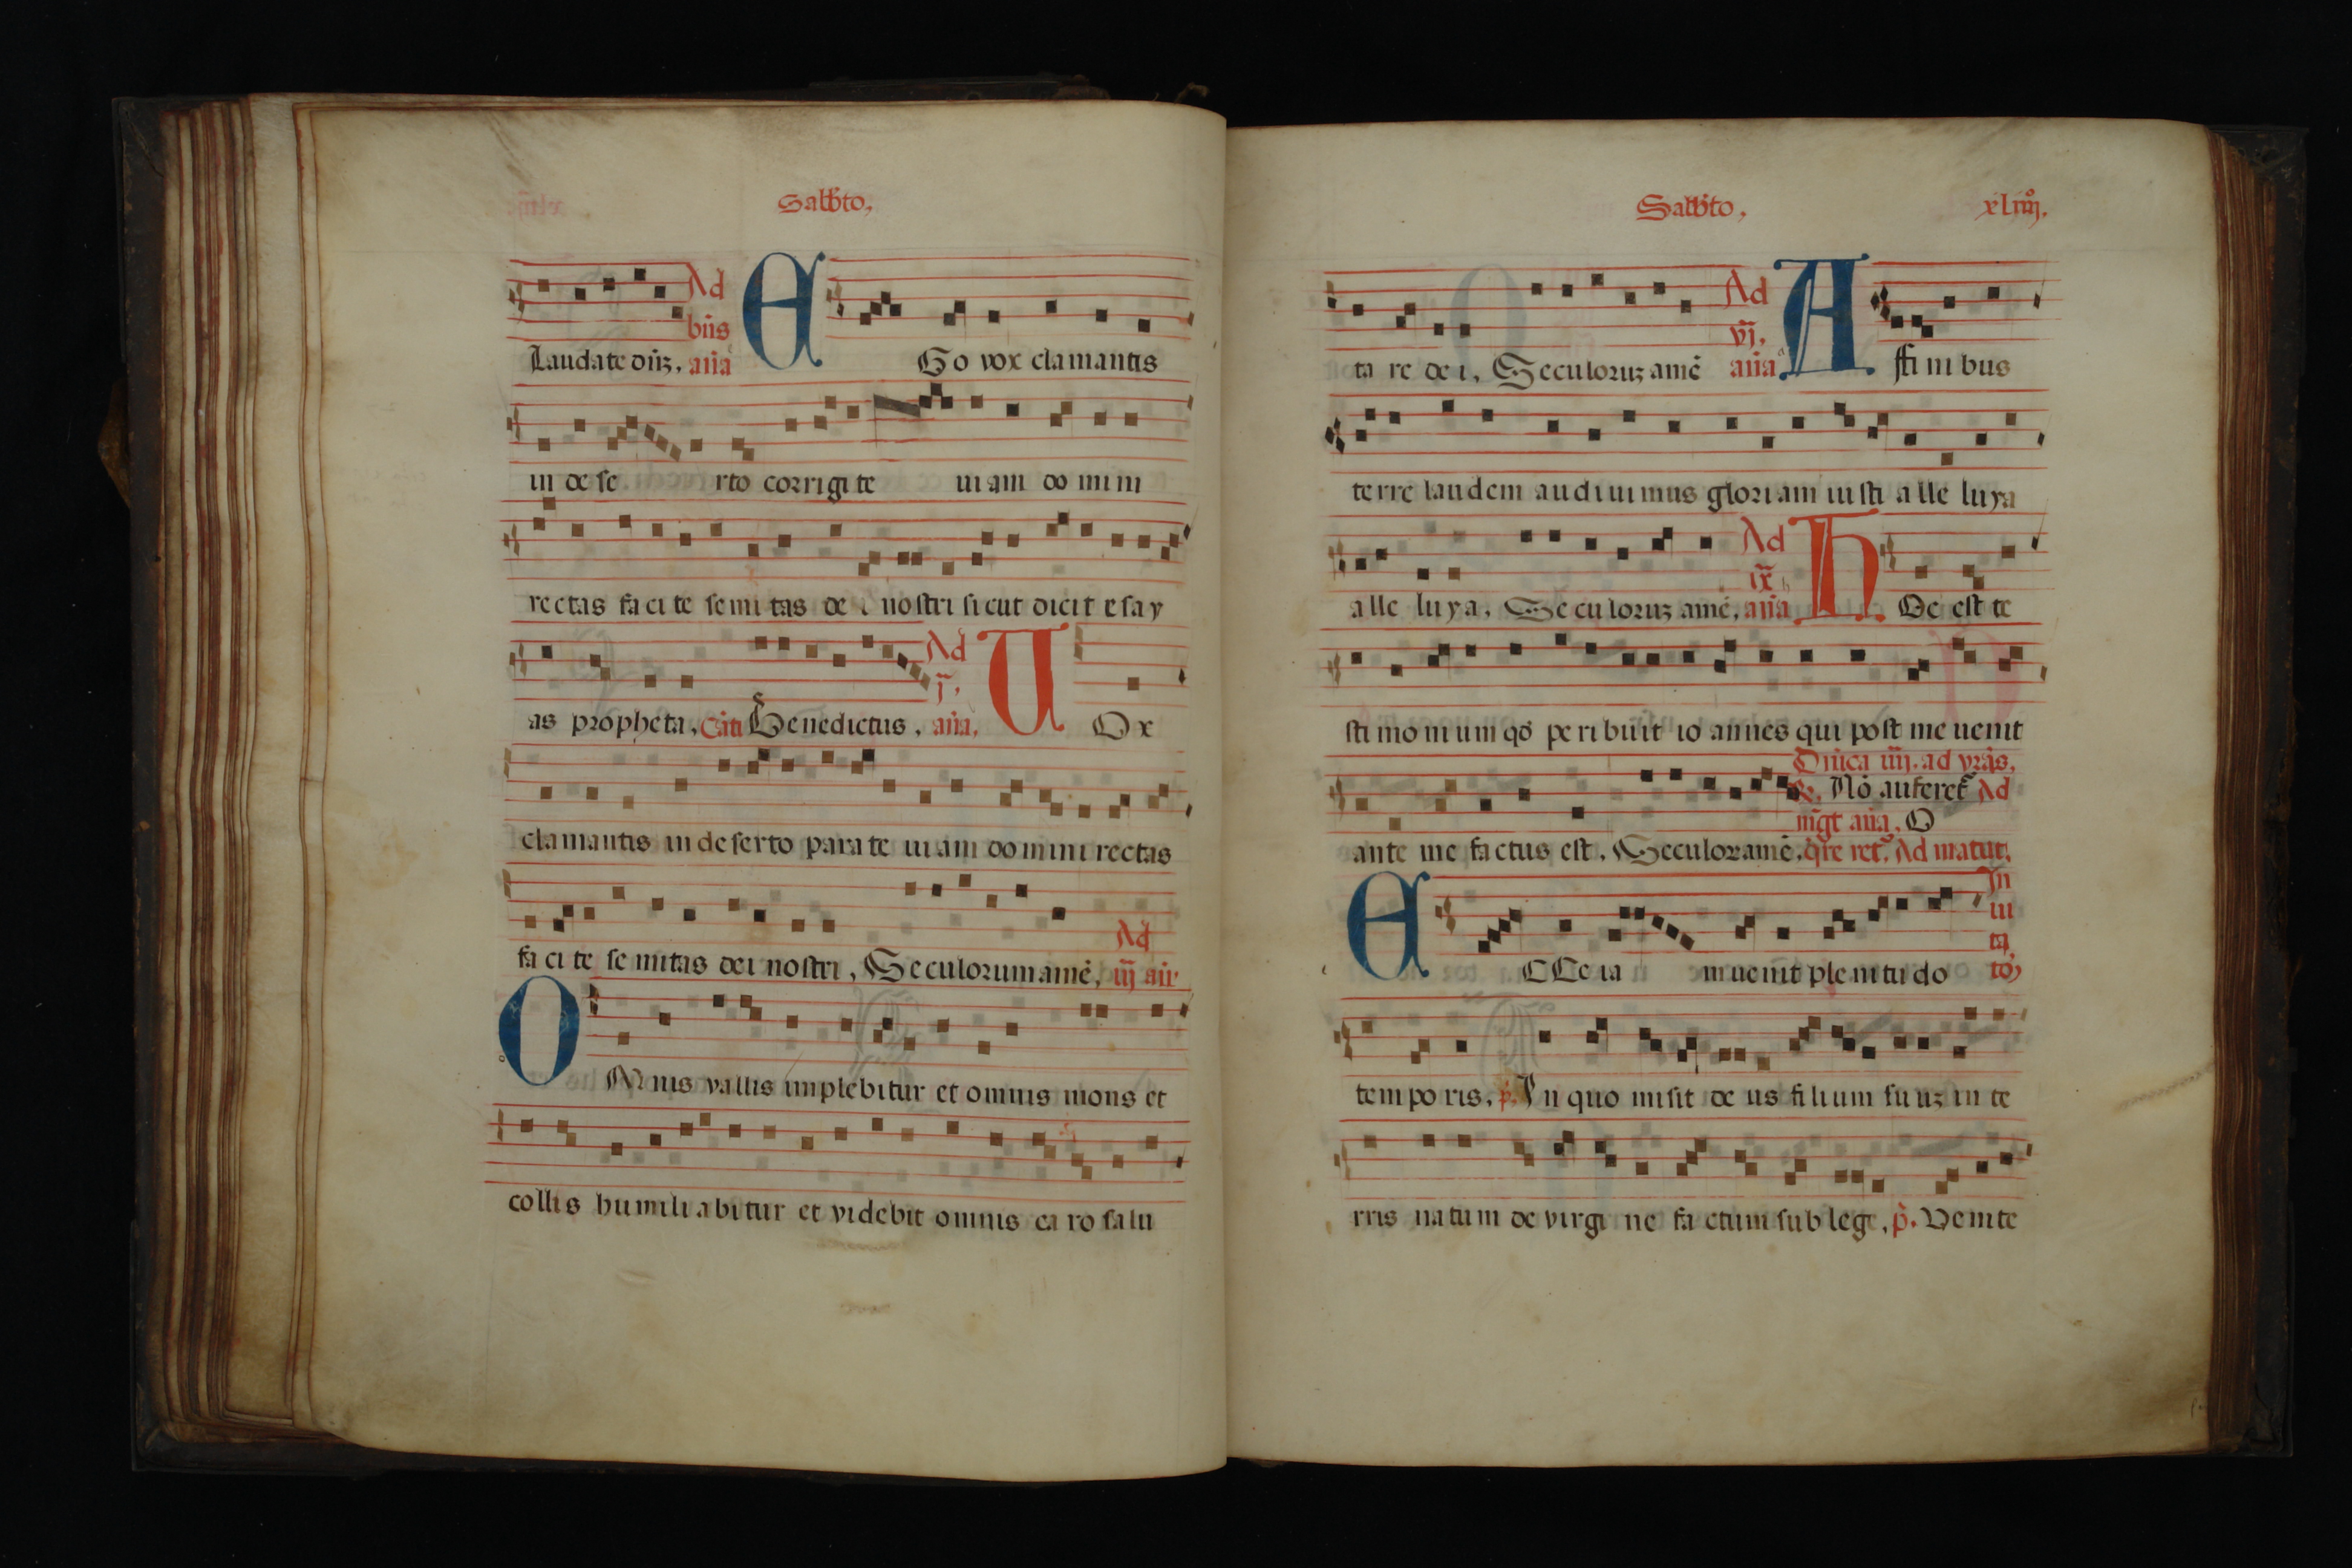 Sabb̄to,
Laudate dn̄ꝫ, Ad bn̄s an̄a EGo vox clamantis
in de se rto corrigi te ui am do mi ni
rectas faci te semi tas de i nostri sicut dicit esay
as propheta, Cāti Benedictus, Ad j̄, an̄a, UOx
clamantis in deserto para te ui am domini rectas
faci te se mitas dei nostri, Seculorum amē, Ad
OMnis vallis implebitur et omnis mons et
collis humili abitur et videbit omnis ca ro salu
Sabb̄to, xliiij.
ta re de i, Seculoruꝫ amē Ad vj̄, an̄a Affi ni bus
terre laudem audi ui mus gloriam iusti a lle luya
alle luya, Seculoruꝫ amē, Ad ix̄ an̄a hOc est te
sti mo ni um qd̄ peribuit io annes qui post me uenit
ante me factus est, Seculoꝝ amē, Dn̄ica iiij. ad vrās, ℟. Nō auferet̄ Ad mḡt an̄a, O q̄re ret̊, Ad matut,
ECCe ia m uenit plenitudo In ui ta tō,
tempo ris, p̄. In quo misit de us filium suuꝫ in te
rris natum de virgi ne factum sub lege, p̄. Venite